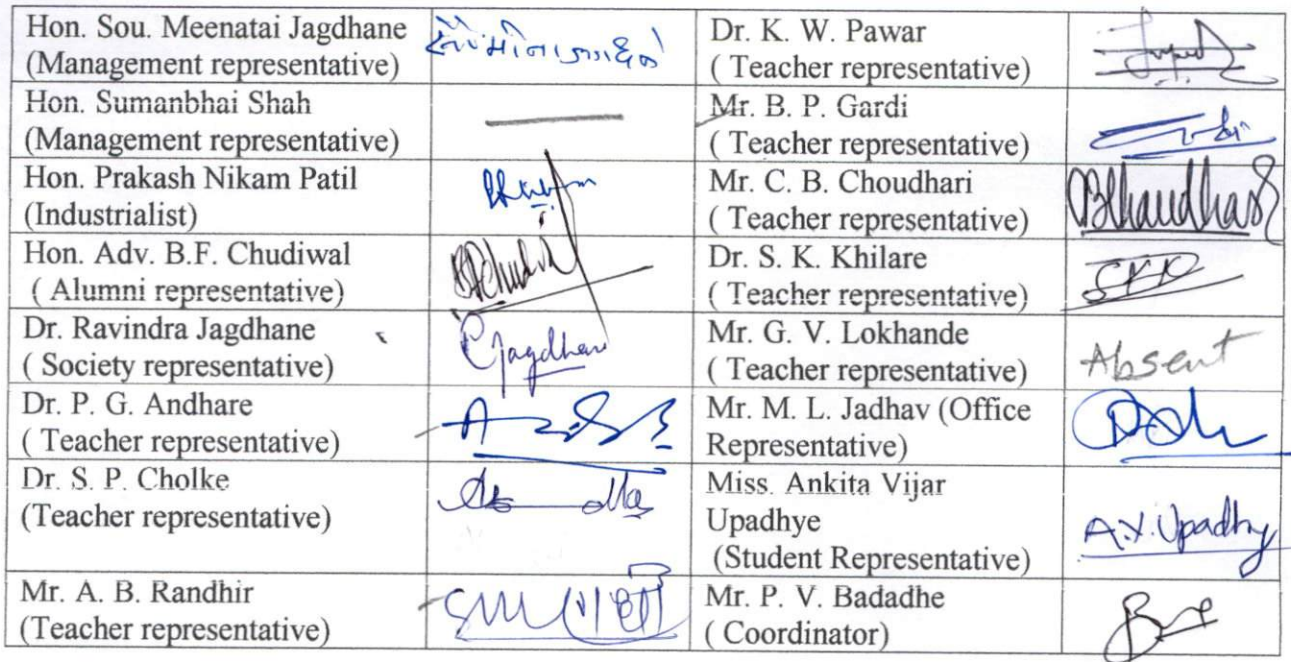 Hon. Sou. Meenatai Jagdhane
(Management representative)
Dr. K. W. Pawar
( Teacher representative)
Hon. Sumanbhai Shah
(Management representative)
Mr. B. P. Gardi
( Teacher representative)
Hon. Prakash Nikam Patil
(Industrialist)
Mr. C. B. Choudhari
( Teacher representative)
Hon. Adv. B.F. Chudiwal
( Alumni representative)
Dr. S. K. Khilare
( Teacher representative)
Dr. Ravindra Jagdhane
( Society representative)
Mr. G. V. Lokhande
( Teacher representative)
Absent
Dr. P. G. Andhare
( Teacher representative)
Mr. M. L. Jadhav (Office
Representative)
Dr. S. P. Cholke
(Teacher representative)
Miss. Ankita Vijar
Upadhye
(Student Representative)
A.V. Upadhy
Mr. A. B. Randhir
(Teacher representative)
Mr. P. V. Badadhe
( Coordinator)